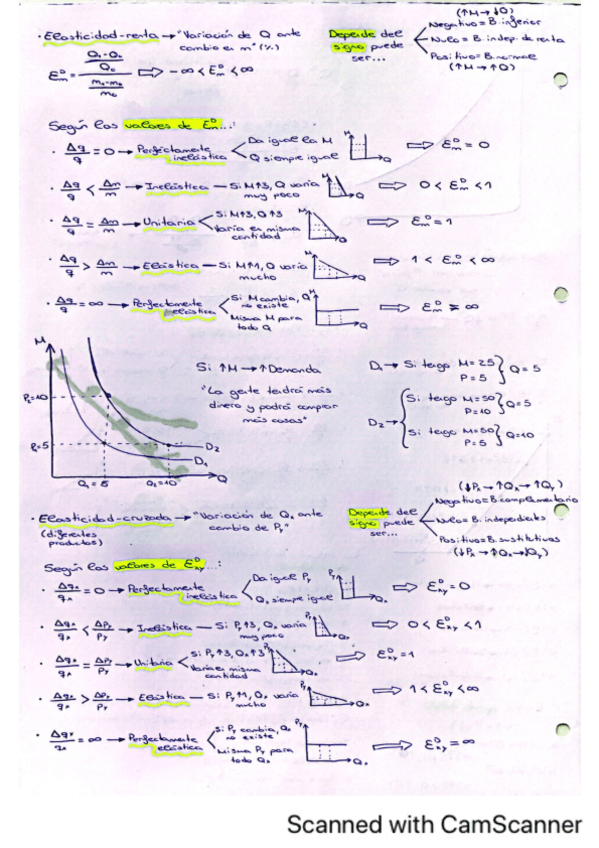 (↑M → ↓Q)
· Elasticidad-renta → "Variación de Q ante cambio en m" (%)
Depende del signo puede ser...
Negativo = B. inferior
Nulo = B. indep. de renta
Positivo = B. normal
(↑M → ↑Q)
E_m^D = ((Q₁-Q₀)/Q₀)/((m₁-m₀)/m₀) ⇒ -∞ < E_m^D < ∞
Según los valores de E_m^D...:
· Δq/q = 0 → Perfectamente inelástica
Da igual la M
Q siempre igual
M
Q
⇒ E_m^D = 0
· Δq/q < Δm/m → Inelástica — Si M↑3, Q varía muy poco
M
Q
⇒ 0 < E_m^D < 1
· Δq/q = Δm/m → Unitaria
Si M↑3, Q↑3
Varía en misma cantidad
M
Q
⇒ E_m^D = 1
· Δq/q > Δm/m → Elástica — Si M↑1, Q varía mucho
M
Q
⇒ 1 < E_m^D < ∞
· Δq/q = ∞ → Perfectamente elástica
Si M cambia, Q no existe
Misma M para todo Q
M
Q
⇒ E_m^D = ∞
M
P₂=10
P=5
Q₁ = 5
Q₂=10
Q
D₂
D₁
Si ↑M → ↑Demanda
"La gente tendrá más
dinero y podrá comprar
más cosas"
D₁ → Si tengo M=25
P=5
} Q=5
D₂ →
Si tengo M=50
P=10
} Q=5
Si tengo M=50
P=5
} Q=10
· Elasticidad-cruzada → "Variación de Qₓ ante cambio de Pᵧ"
(diferentes
productos)
Depende del signo puede ser...
(↓Pₓ → ↑Qₓ → ↑Qᵧ)
Negativo = B. complementario
Nulo = B. independientes
Positivo = B. sustitutivos
(↓Pₓ → ↑Qₓ → ↓Qᵧ)
Según los valores de E_xy^D...:
· Δqₓ/qₓ = 0 → Perfectamente inelástica
Da igual Pᵧ
Qₓ siempre igual
Pᵧ
Qₓ
⇒ E_xy^D = 0
· Δqₓ/qₓ < ΔPᵧ/Pᵧ → Inelástica — Si Pᵧ↑3, Qₓ varía muy poco
Pᵧ
Qₓ
⇒ 0 < E_xy^D < 1
· Δqₓ/qₓ = ΔPᵧ/Pᵧ → Unitaria
Si Pᵧ↑3, Qₓ↑3
Varía en misma cantidad
Pᵧ
Qₓ
⇒ E_xy^D = 1
· Δqₓ/qₓ > ΔPᵧ/Pᵧ → Elástica — Si Pᵧ↑1, Qₓ varía mucho
Pᵧ
Qₓ
⇒ 1 < E_xy^D < ∞
· Δqₓ/qₓ = ∞ → Perfectamente elástica
Si Pᵧ cambia, Qₓ no existe
Misma Pᵧ para todo Qₓ
Pᵧ
Qₓ
⇒ E_xy^D = ∞
Scanned with CamScanner